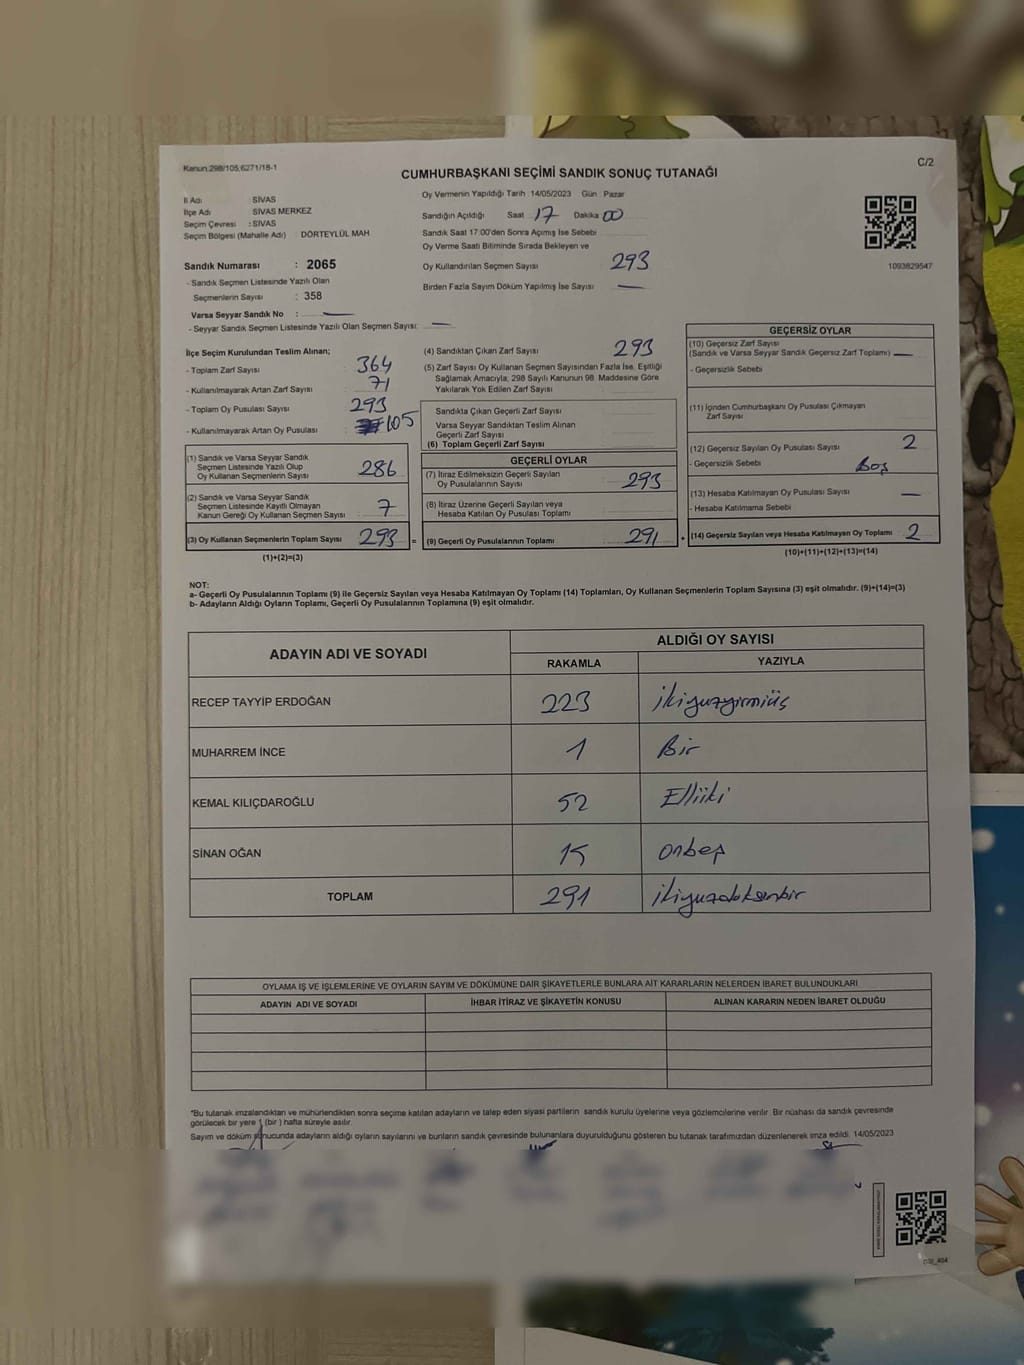 Kanun:298/105,6271/18-1
C/2
CUMHURBAŞKANI SEÇİMİ SANDIK SONUÇ TUTANAĞI
İl Adı SİVAS
İlçe Adı SİVAS MERKEZ
Seçim Çevresi : SİVAS
Seçim Bölgesi (Mahalle Adı) : DÖRTEYLÜL MAH
Sandık Numarası : 2065
- Sandık Seçmen Listesinde Yazılı Olan
Seçmenlerin Sayısı : 358
Varsa Seyyar Sandık No :
- Seyyar Sandık Seçmen Listesinde Yazılı Olan Seçmen Sayısı:
Oy Vermenin Yapıldığı Tarih :14/05/2023 Gün : Pazar
Sandığın Açıldığı Saat 17 Dakika 00
Sandık Saat 17:00'den Sonra Açımış İse Sebebi
Oy Verme Saati Bitiminde Sırada Bekleyen ve
Oy Kullandırılan Seçmen Sayısı 293
Birden Fazla Sayım Döküm Yapılmış İse Sayısı
1093829547
İlçe Seçim Kurulundan Teslim Alınan;
- Toplam Zarf Sayısı 364
- Kullanılmayarak Artan Zarf Sayısı 71
- Toplam Oy Pusulası Sayısı 293
- Kullanılmayarak Artan Oy Pusulası 105
(1) Sandık ve Varsa Seyyar Sandık
Seçmen Listesinde Yazılı Olup
Oy Kullanan Seçmenlerin Sayısı 286
(2) Sandık ve Varsa Seyyar Sandık
Seçmen Listesinde Kayıtlı Olmayan
Kanun Gereği Oy Kullanan Seçmen Sayısı 7
(3) Oy Kullanan Seçmenlerin Toplam Sayısı 293 =
(1)+(2)=(3)
(4) Sandıktan Çıkan Zarf Sayısı 293
(5) Zarf Sayısı Oy Kullanan Seçmen Sayısından Fazla İse, Eşitliği
Sağlamak Amacıyla, 298 Sayılı Kanunun 98. Maddesine Göre
Yakılarak Yok Edilen Zarf Sayısı
Sandıkta Çıkan Geçerli Zarf Sayısı
Varsa Seyyar Sandıktan Teslim Alınan
Geçerli Zarf Sayısı
(6) Toplam Geçerli Zarf Sayısı
GEÇERLİ OYLAR
(7) İtiraz Edilmeksizin Geçerli Sayılan
Oy Pusulalarının Sayısı 293
(8) İtiraz Üzerine Geçerli Sayılan veya
Hesaba Katılan Oy Pusulası Toplamı
(9) Geçerli Oy Pusulalarının Toplamı 291 +
GEÇERSİZ OYLAR
(10) Geçersiz Zarf Sayısı
(Sandık ve Varsa Seyyar Sandık Geçersiz Zarf Toplamı)
- Geçersizlik Sebebi
(11) İçinden Cumhurbaşkanı Oy Pusulası Çıkmayan
Zarf Sayısı
(12) Geçersiz Sayılan Oy Pusulası Sayısı 2
- Geçersizlik Sebebi Boş
(13) Hesaba Katılmayan Oy Pusulası Sayısı
- Hesaba Katılmama Sebebi
(14) Geçersiz Sayılan veya Hesaba Katılmayan Oy Toplamı 2
(10)+(11)+(12)+(13)=(14)
NOT:
a- Geçerli Oy Pusulalarının Toplamı (9) ile Geçersiz Sayılan veya Hesaba Katılmayan Oy Toplamı (14) Toplamları, Oy Kullanan Seçmenlerin Toplam Sayısına (3) eşit olmalıdır. (9)+(14)=(3)
b- Adayların Aldığı Oyların Toplamı, Geçerli Oy Pusulalarının Toplamına (9) eşit olmalıdır.
ADAYIN ADI VE SOYADI
ALDIĞI OY SAYISI
RAKAMLA YAZIYLA
RECEP TAYYİP ERDOĞAN 223 ikiyuzyirmiüç
MUHARREM İNCE 1 Bir
KEMAL KILIÇDAROĞLU 52 Elliiki
SİNAN OĞAN 15 onbeş
TOPLAM 291 ikiyuzdoksanbir
OYLAMA İŞ VE İŞLEMLERİNE VE OYLARIN SAYIM VE DÖKÜMÜNE DAİR ŞİKAYETLERLE BUNLARA AİT KARARLARIN NELERDEN İBARET BULUNDUKLARI
ADAYIN ADI VE SOYADI İHBAR İTİRAZ VE ŞİKAYETİN KONUSU ALINAN KARARIN NEDEN İBARET OLDUĞU
*Bu tutanak imzalandıktan ve mühürlendikten sonra seçime katılan adayların ve talep eden siyasi partilerin sandık kurulu üyelerine veya gözlemcilerine verilir. Bir nüshası da sandık çevresinde
görülecek bir yere 1 (bir ) hafta süreyle asılır.
Sayım ve döküm sonucunda adayların aldığı oyların sayılarını ve bunların sandık çevresinde bulunanlara duyurulduğunu gösteren bu tutanak tarafımızdan düzenlenerek imza edildi. 14/05/2023